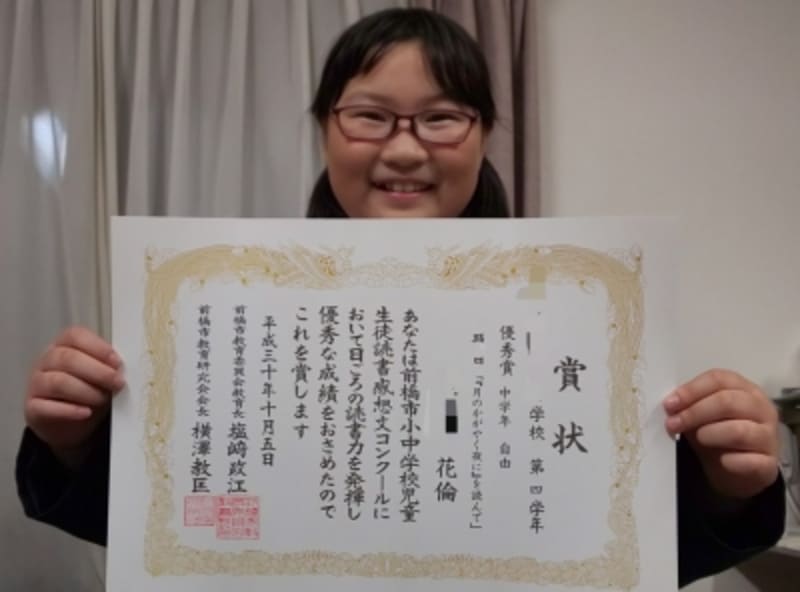 賞状
学校 第四学年
優秀賞 中学年 自由
題 名 「『月のかがやく夜に』を読んで」
花倫
あなたは前橋市小中学校児童
生徒読書感想文コンクールに
おいて日ごろの読書力を発揮し
優秀な成績をおさめたので
これを賞します
平成三十年十月五日
前橋市教育委員会教育長 塩﨑政江
前橋市教育研究会会長 横澤教匡